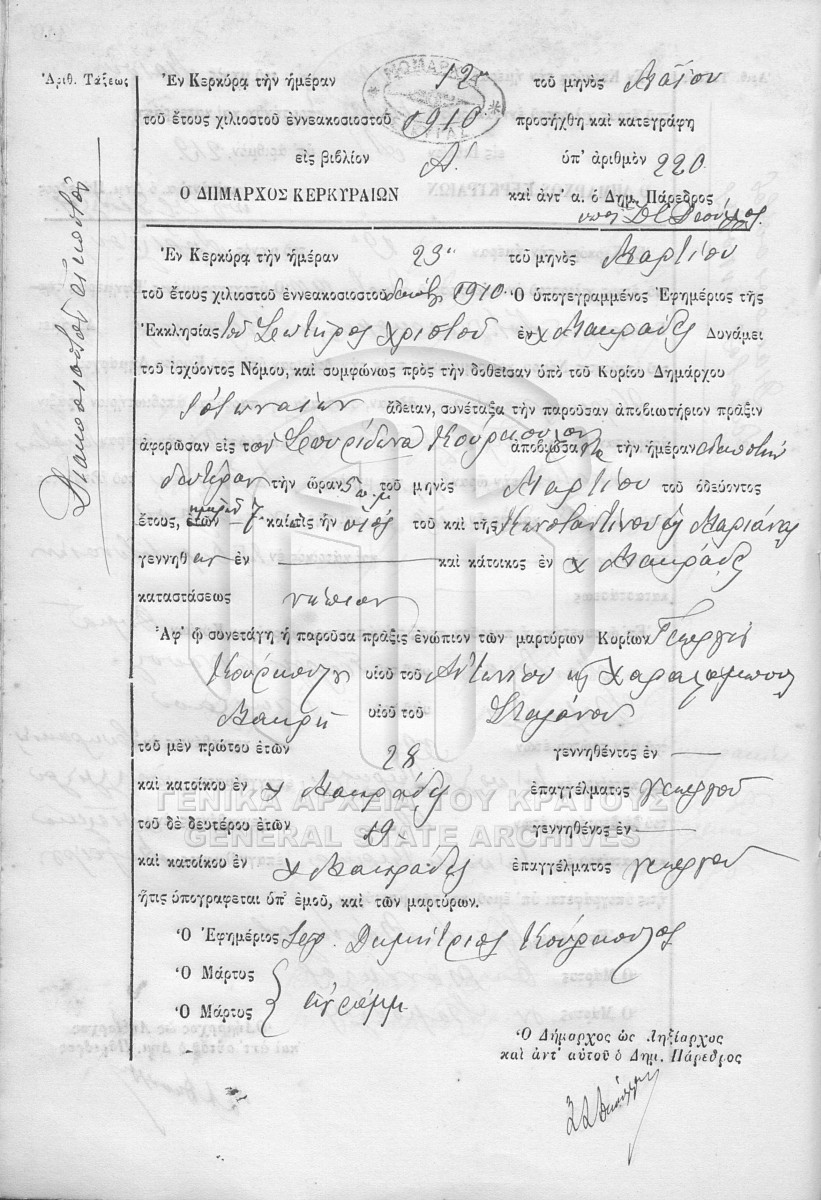 Ἀριθ. Τάξεως
Ἐν Κερκύρᾳ τὴν ἡμέραν 12 τοῦ μηνὸς Μαΐου
τοῦ ἔτους χιλιοστοῦ ἐννεακοσιοστοῦ 1910 προσήχθη καὶ κατεγράφη
εἰς βιβλίον Α. ὑπ' ἀριθμὸν 220
Ο ΔΗΜΑΡΧΟΣ ΚΕΡΚΥΡΑΙΩΝ καὶ ἀντ' α. ὁ Δημ. Πάρεδρος
Ἐν Κερκύρᾳ τὴν ἡμέραν 23 τοῦ μηνὸς Μαρτίου
τοῦ ἔτους χιλιοστοῦ ἐννεακοσιοστοῦ 1910 Ὁ ὑπογεγραμμένος Ἐφημέριος τῆς
Ἐκκλησίας τοῦ Σωτῆρος Χριστοῦ ἐν χ Μακράδες Δυνάμει
τοῦ ἰσχύοντος Νόμου, καὶ συμφώνως πρὸς τὴν δοθεῖσαν ὑπὸ τοῦ Κυρίου Δημάρχου
ἄδειαν, συνέταξα τὴν παροῦσαν ἀποβιωτήριον πρᾶξιν
ἀφορῶσαν εἰς τὸν Σπυρίδωνα Κούρκουλον ἀποβιώσαντα τὴν ἡμέραν εἰκοστὴν
δευτέραν τὴν ὥραν 5 π.μ. τοῦ μηνὸς Μαρτίου τοῦ ὁδεύοντος
ἔτους, ἐτῶν ἡμερῶν 7 καὶ τις ἦν υἱὸς τοῦ καὶ τῆς Κωνσταντίνου καὶ Μαριάνας
γεννηθεὶς ἐν — καὶ κάτοικος ἐν χ Μακράδες
καταστάσεως νήπιον
Ἀφ' ᾧ συνετάγη ἡ παροῦσα πρᾶξις ἐνώπιον τῶν μαρτύρων Κυρίων Γεωργίου
Κούρκουλου υἱοῦ τοῦ Ἀντωνίου καὶ Χαραλάμπους
Μακρῆ υἱοῦ τοῦ Σταμάτου
τοῦ μὲν πρώτου ἐτῶν 28 γεννηθέντος ἐν —
καὶ κατοίκου ἐν χ Μακράδες ἐπαγγέλματος γεωργοῦ
ΓΕΝΙΚΑ ΑΡΧΕΙΑ ΤΟΥ ΚΡΑΤΟΥΣ
τοῦ δὲ δευτέρου ἐτῶν 19 γεννηθένος ἐν —
GENERAL STATE ARCHIVES
καὶ κατοίκου ἐν χ Μακράδες ἐπαγγέλματος γεωργοῦ
ἥτις ὑπογράφεται ὑπ' ἐμοῦ, καὶ τῶν μαρτύρων.
Ὁ Ἐφημέριος Ιερ. Δημήτριος Κούρκουλος
Ὁ Μάρτυς
Ὁ Μάρτυς ἀγράμμ.
Ὁ Δήμαρχος ὡς Ληξίαρχος
καὶ ἀντ' αὐτοῦ ὁ Δημ. Πάρεδρος